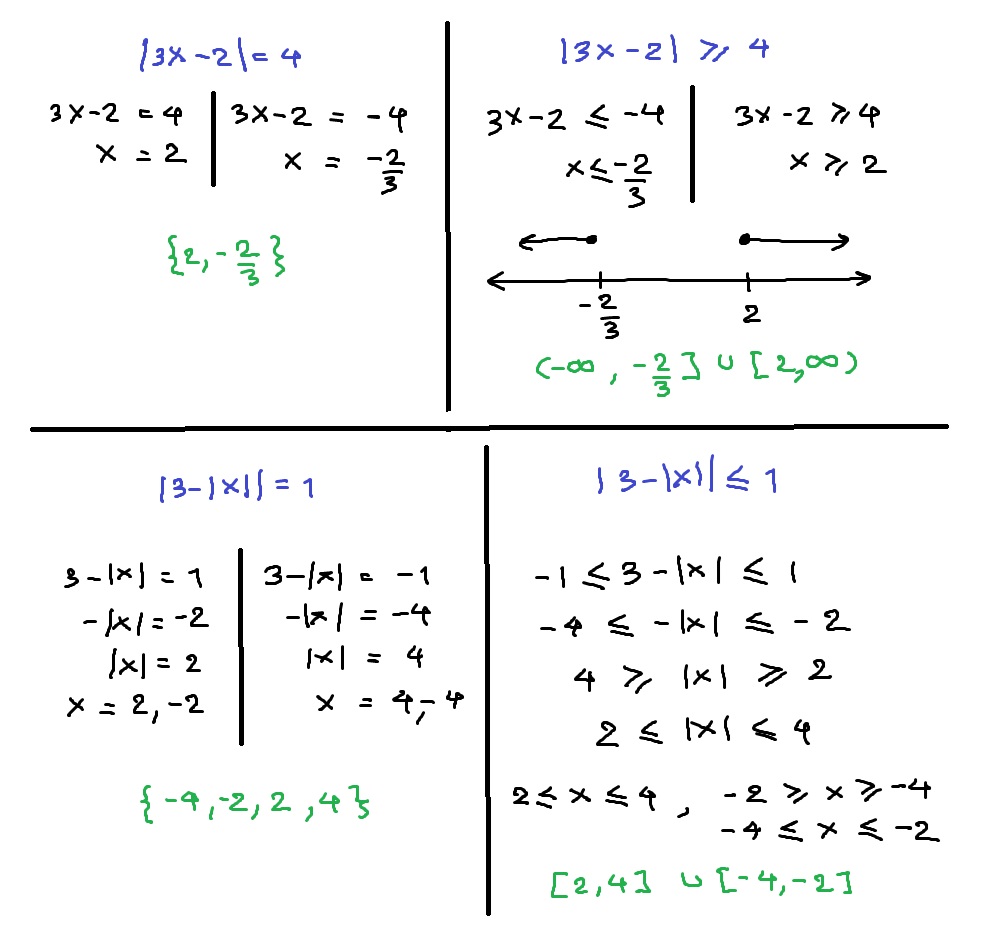 |3x-2| = 4
3x-2 = 4
x = 2
3x-2 = -4
x = -2/3
{2, -2/3}
|3x-2| ⩾ 4
3x-2 ≤ -4
x ≤ -2/3
3x-2 ⩾ 4
x ⩾ 2
-2/3
2
(-∞, -2/3] ∪ [2,∞)
|3-|x|| = 1
3-|x| = 1
-|x| = -2
|x| = 2
x = 2, -2
3-|x| = -1
-|x| = -4
|x| = 4
x = 4, -4
{-4, -2, 2, 4}
|3-|x|| ≤ 1
-1 ≤ 3-|x| ≤ 1
-4 ≤ -|x| ≤ -2
4 ⩾ |x| ⩾ 2
2 ≤ |x| ≤ 4
2 ≤ x ≤ 4, -2 ⩾ x ⩾ -4
-4 ≤ x ≤ -2
[2,4] ∪ [-4,-2]